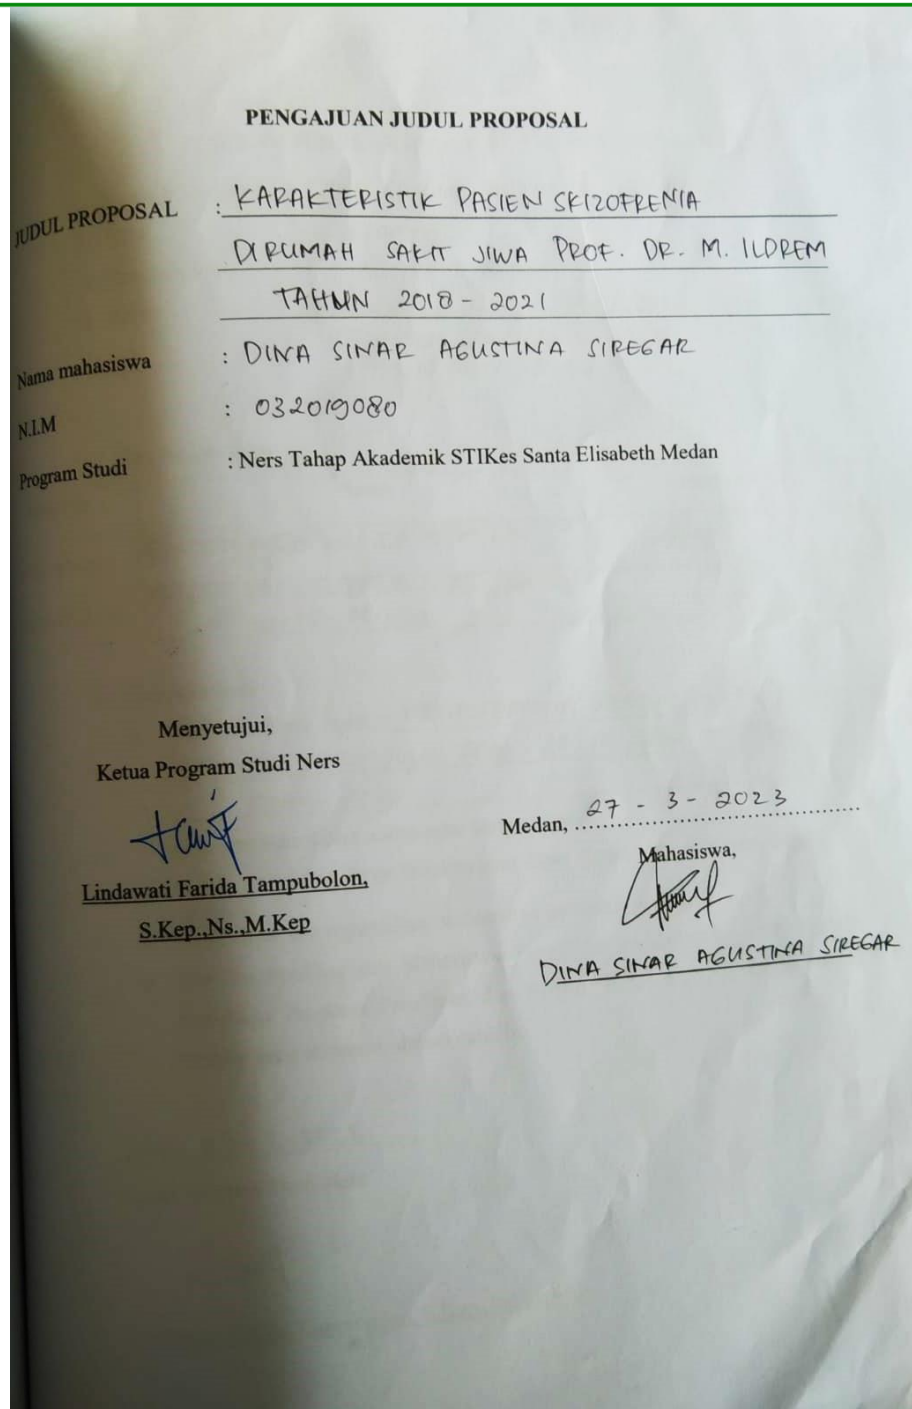 PENGAJUAN JUDUL PROPOSAL
JUDUL PROPOSAL : KARAKTERISTIK PASIEN SKIZOFRENIA
DIRUMAH SAKIT JIWA PROF. DR. M. ILDREM
TAHUN 2018 - 2021
Nama mahasiswa : DINA SINAR AGUSTINA SIREGAR
N.I.M : 032019080
Program Studi : Ners Tahap Akademik STIKes Santa Elisabeth Medan
Menyetujui,
Ketua Program Studi Ners
Medan, 27 - 3 - 2023
Mahasiswa,
Lindawati Farida Tampubolon,
S.Kep.,Ns.,M.Kep
DINA SINAR AGUSTINA SIREGAR